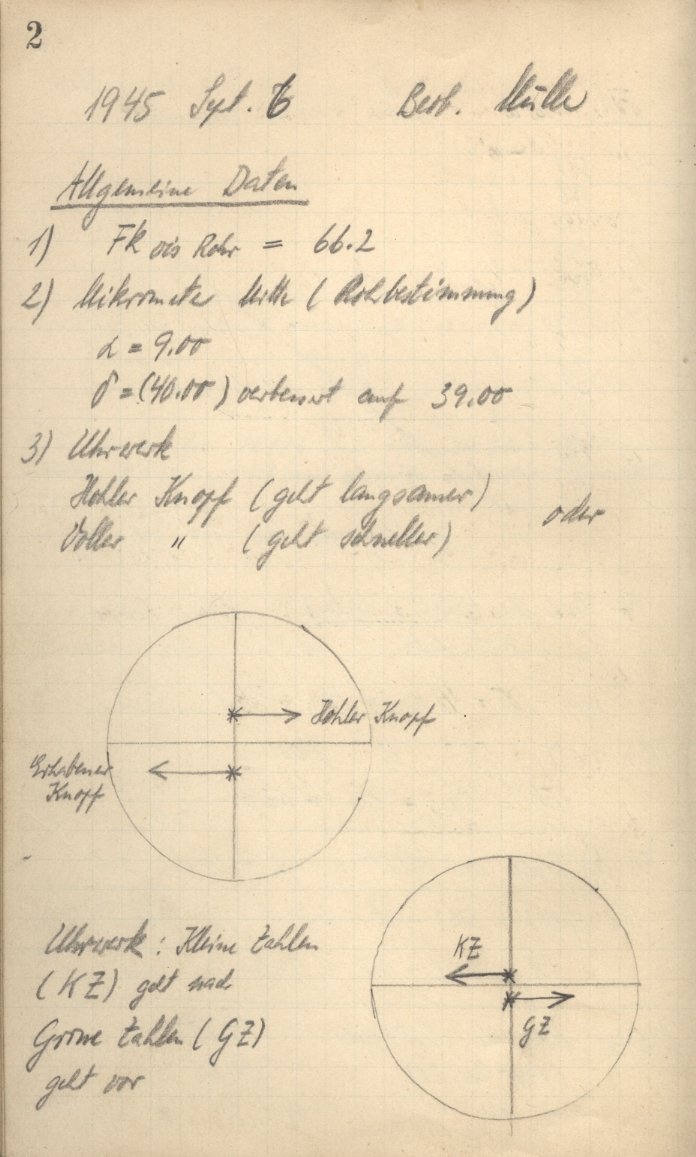 2
1945 Sept. 6 Beob. Müller
Allgemeine Daten
1) FK vis Rohr = 66.2
2) Mikrometer Mitte (Rohbestimmung)
α = 9.00
δ = (40.00) verbessert auf 39.00
3) Uhrwerk
Hohler Knopf (geht langsamer)
oder
Voller " (geht schneller)
Hohler Knopf
Erhabener
Knopf
Uhrwerk: Kleine Zahlen
(KZ) geht nach
Grosse Zahlen (GZ)
geht vor
KZ
GZ